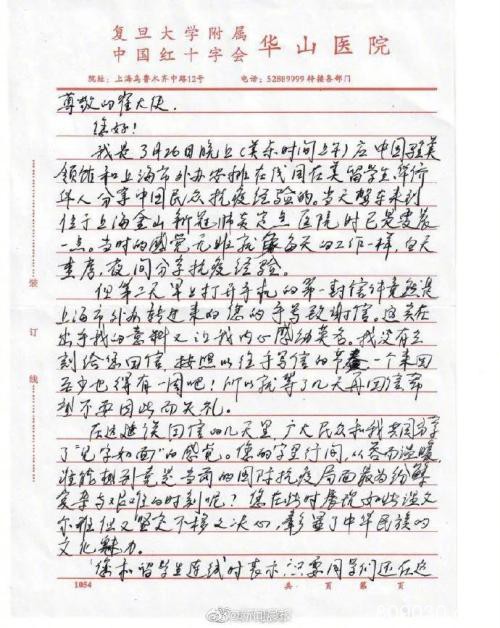 复旦大学附属
中国红十字会 华山医院
院址：上海乌鲁木齐中路12号 电话：52889999转接各部门
尊敬的崔大使，
您好！
我是3月26日晚上（美东时间上午）应中国驻美
领馆和上海市外办安排在民国在美留学生、华侨
华人分享中国民众抗疫经验的。当天驾车来到
位于上海金山新冠肺炎定点医院时已是凌晨
一点。当时的感觉无非就每天的工作一样，白天
查房，夜间分享抗疫经验。
但第二天早上打开手机的第一封信件竟然是
上海市外办转过来的您的手写致谢信。这实在
出乎我的意料又让我内心感动莫名。我没有立
刻给您回信，按照以往手写信的节奏一个来回
至少也得有一周吧！所以就等了几天再回信希
望不要因此而失礼。
在这延误回信的几天里，广大民众和我共同分享
了“见字如面”的感觉。您的字里行间，从容而温暖，
谁能想到竟是当两国对抗疫局面最为纷繁
复杂与艰难的时刻呢？您在此时展现如此温文
尔雅但又坚定不移之决心，彰显了中华民族的
文化魅力。
您和留学生连线时表示只要同学们还在这
装
订
线
1054 共 页 第 页